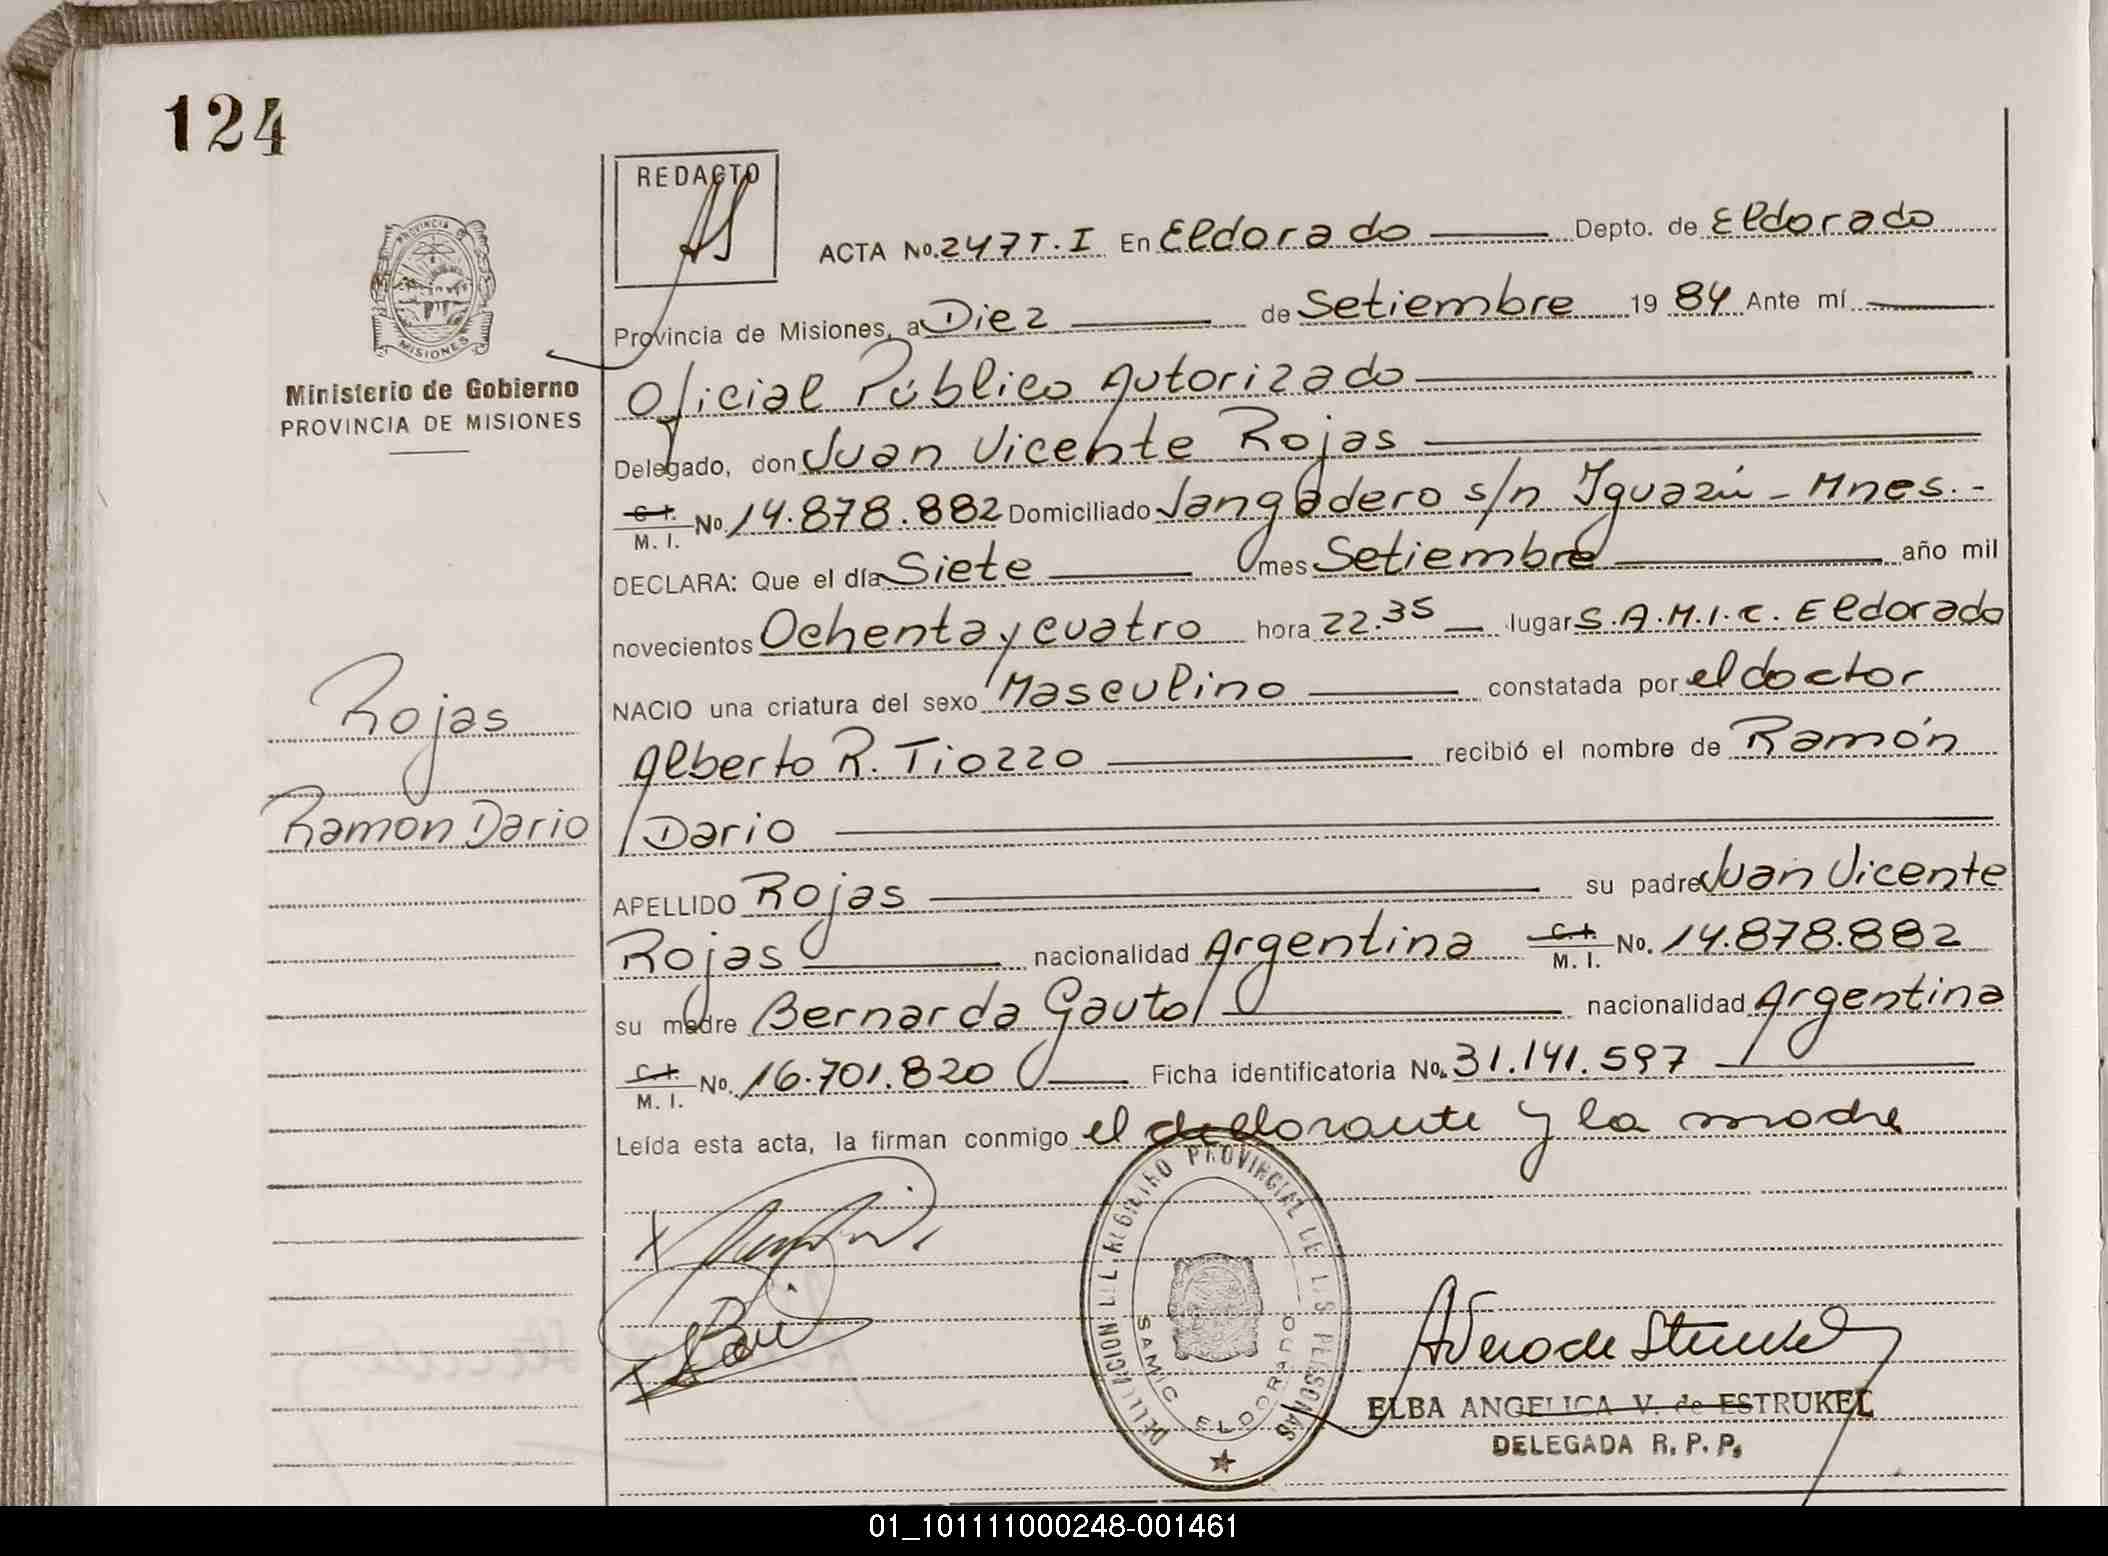 124
REDACTO
PROVINCIA
MISIONES
Ministerio de Gobierno
PROVINCIA DE MISIONES
ACTA No. 247 T. I En Eldorado Depto. de Eldorado
Provincia de Misiones, a Diez de Setiembre 19 84 Ante mí
Oficial Público Autorizado
Delegado, don Juan Vicente Rojas
C. I.
M. I. No. 14.878.882 Domiciliado Jangadero s/n Iguazú - Mnes. -
DECLARA: Que el día Siete mes Setiembre año mil
novecientos Ochenta y cuatro hora 22.35 lugar S.A.M.I.C. Eldorado
NACIO una criatura del sexo Masculino constatada por el doctor
Alberto R. Tiozzo recibió el nombre de Ramón
Dario
APELLIDO Rojas su padre Juan Vicente
Rojas nacionalidad Argentina C. I. M. I. No. 14.878.882
su madre Bernarda Gauto nacionalidad Argentina
C. I.
M. I. No. 16.701.820 Ficha identificatoria No. 31.141.597
Leída esta acta, la firman conmigo el declorante y la madre
Rojas
Ramon Dario
DELEGACION DEL REGISTRO PROVINCIAL DE LAS PERSONAS
SAMIC ELDORADO
ELBA ANGELICA V. de ESTRUKEL
DELEGADA R. P. P.
01_101111000248-001461